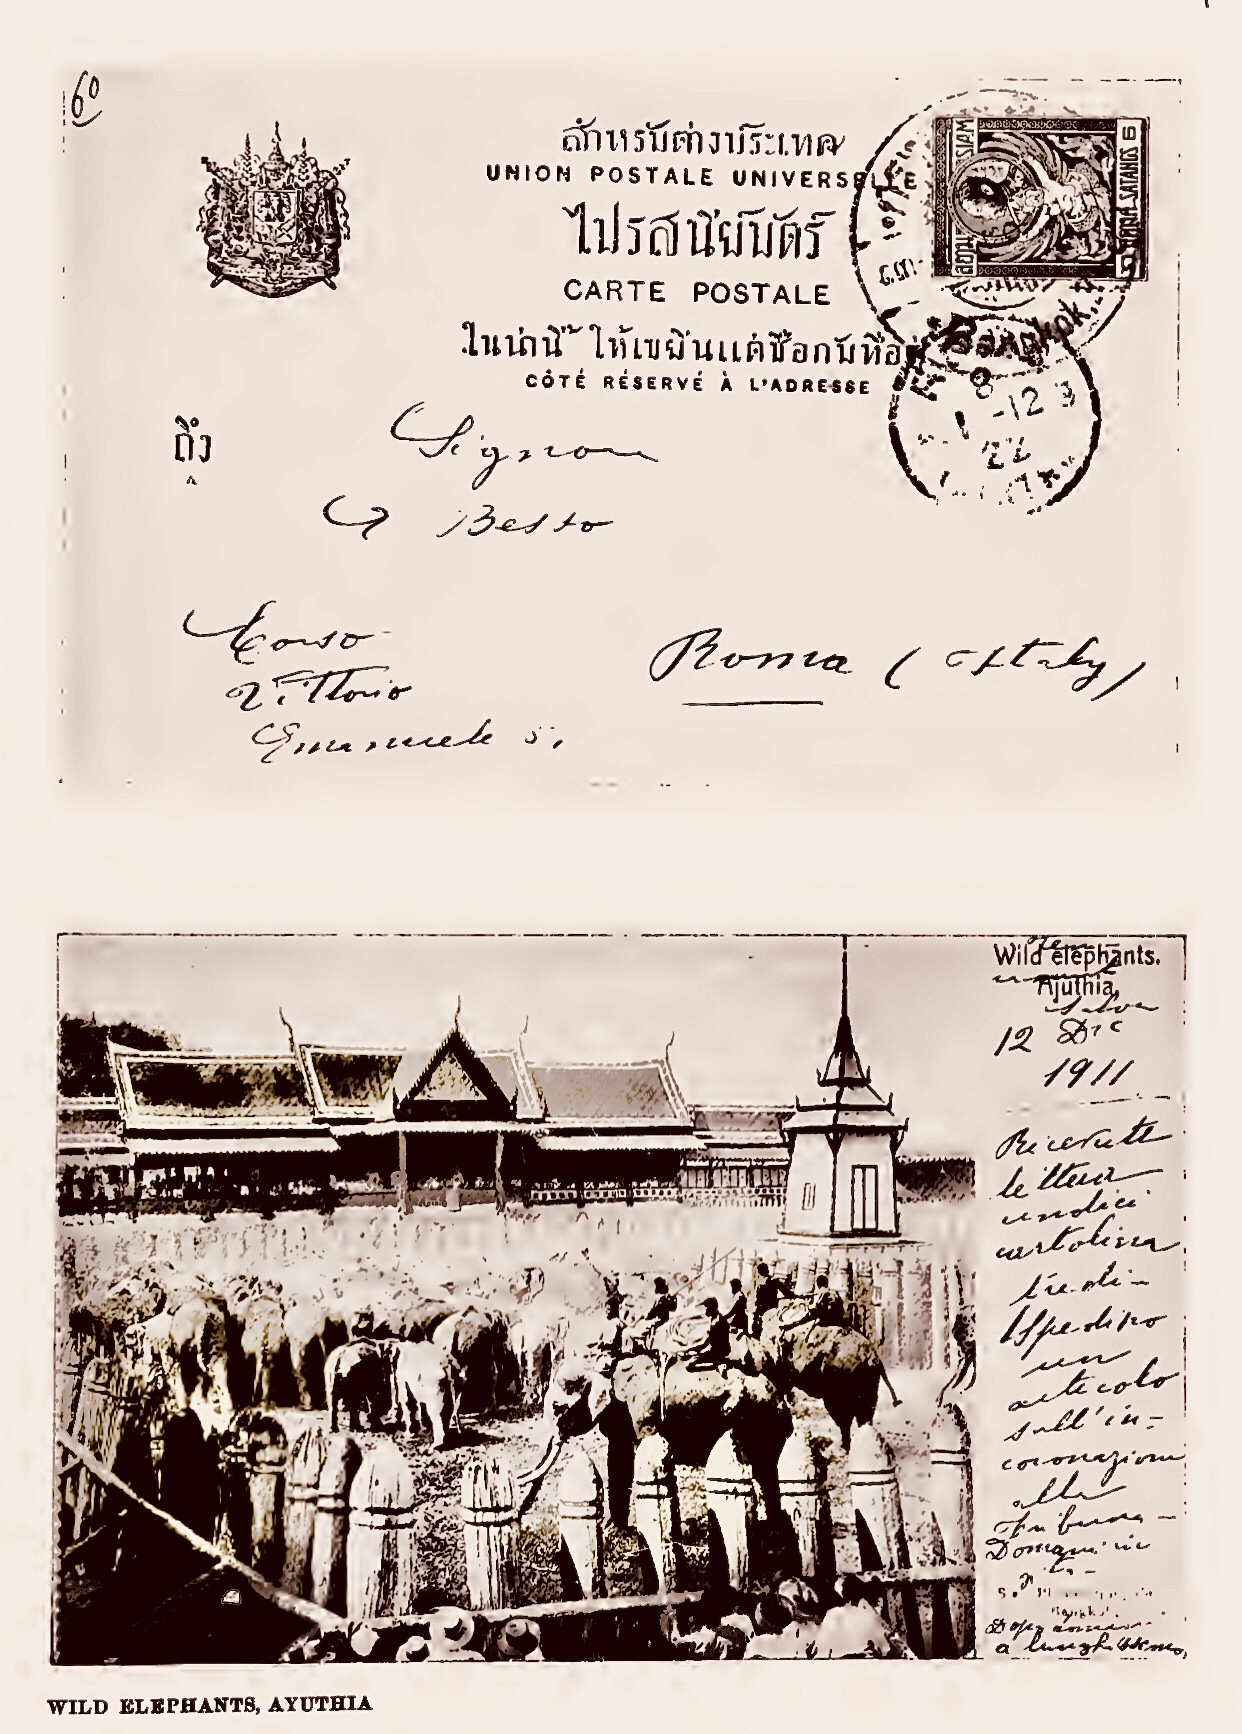 60
สำหรับต่างประเทศ
UNION POSTALE UNIVERSELLE
ไปรสนีย์บัตร์
CARTE POSTALE
ในน่านี้ ให้เขยีนแต่ชื่อกับที่อยู่
CÔTÉ RÉSERVÉ À L'ADRESSE
สยาม SIAM
๖ สตางค์ 6 SATANGS
Bangkok
8
12
ถึง
Signor
G Besso
Corso
Vittorio
Emanuele 51
Roma (Italy)
Wild elephants.
Ajuthia.
12 Dic
1911
Ricevute
lettera
undici
cartolina
tredi-
Spedisco
un
articolo
sull'in-
coronazione
alla
Tribuna -
Domani
Bangkok
a lunghi
WILD ELEPHANTS, AYUTHIA